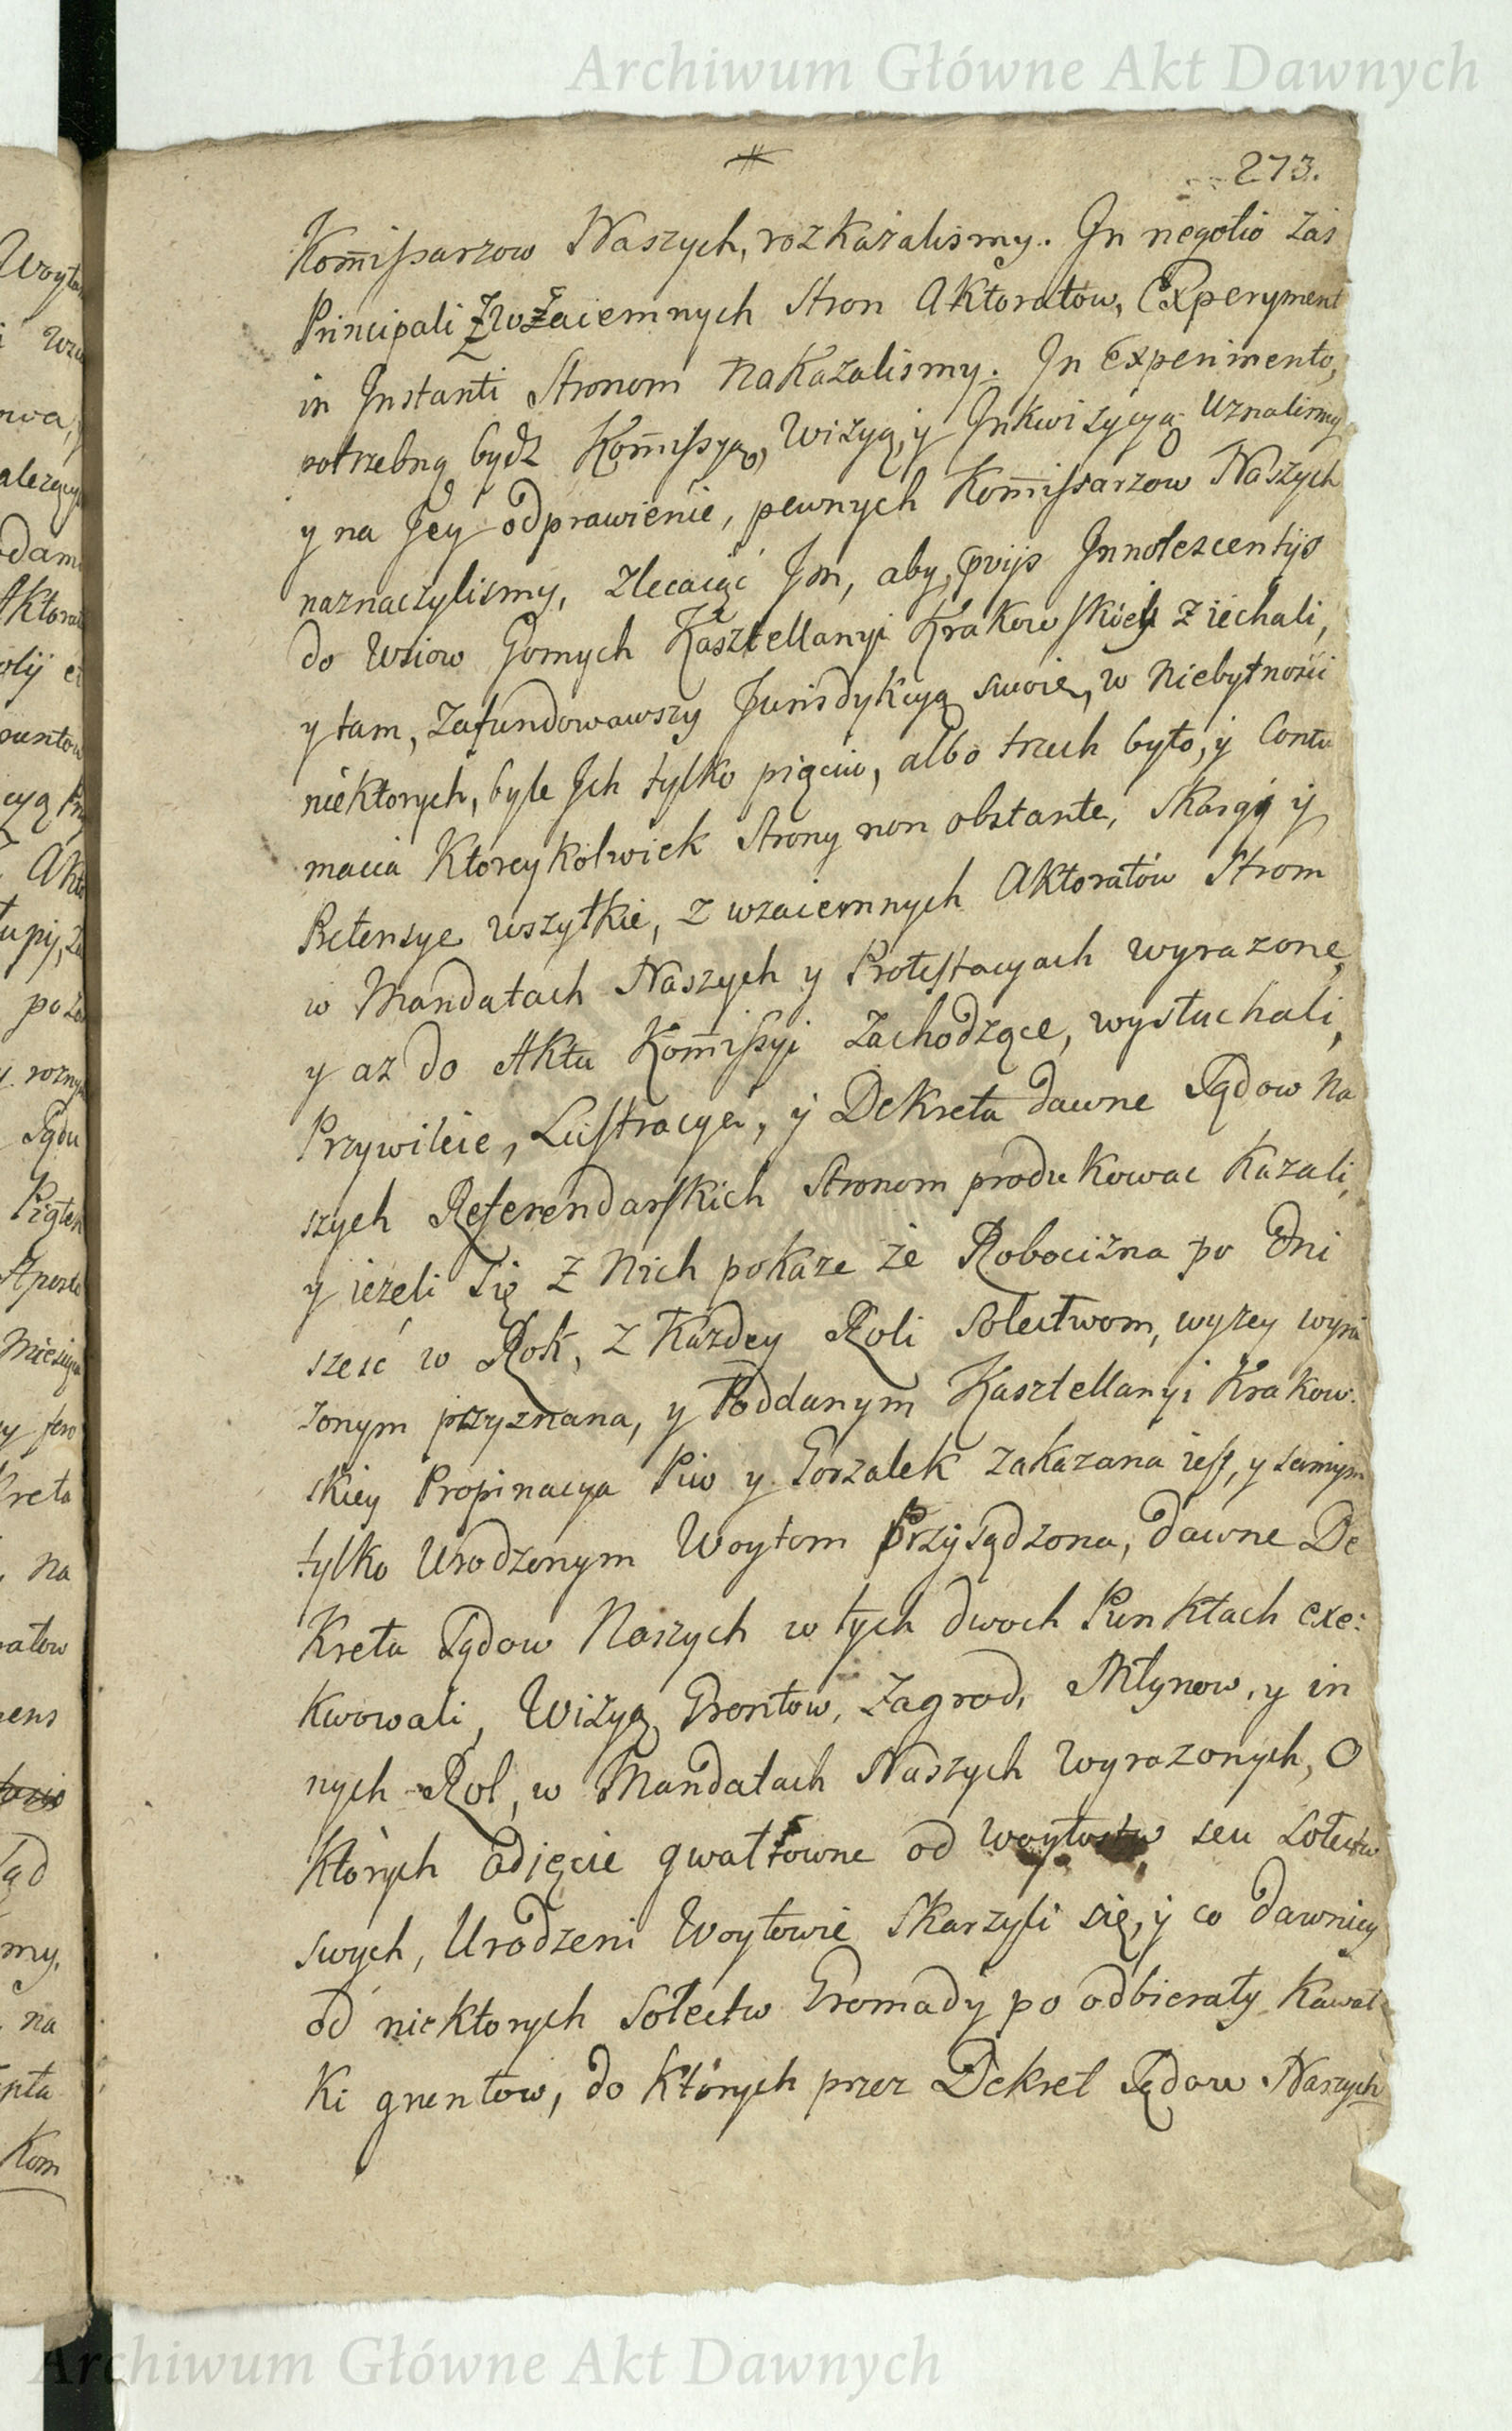 Archiwum Główne Akt Dawnych
273.
Kom̄issarzow Naszych, rozkazalismy. In negotio zas
Principali z wzaiemnych Stron Aktoratow, Experyment
in Instanti Stronom nakazalismy. In Experimento,
potrzebną bydz Kom̄issyą, Wizyą, y Inkwizycyą uznalismy
y na Jey odprawienie, pewnych Kom̄issarzow Naszych
naznaczylismy, zlecaiąc Im, aby, prvijs Innotescentijs
do Wsiow Gornych Kasztellanyi Krakowskiey ziechali,
y tam, zafundowawszy Jurisdykcyą swoię, w niebytnosci
niektorych, byle Ich tylko pięciu, albo trzech było, y Contu
macia Ktoreykolwiek Strony non obstante, Skargi y
Pretensye wszytkie, z wzaiemnych Aktoratow Strom
w Mandatach Naszych y Protestacyach wyrazone,
y az do Aktu Kom̄issyi zachodzące, wysłuchali,
Przywileie, Lustracye, y Dekreta dawne Sądow Na
szych Referendarskich Stronom produkowac kazali,
y iezeli się z Nich pokaze ze Robocizna po Dni
szesc w Rok, z Kazdey Roli Solectwom, wyzey wyra
zonym przyznana, y Poddanym Kasztellanyi Krakow:
skiey Propinacya Piw y Gorzalek zakazana iest, y samym
tylko Urodzonym Woytom Przysądzona, dawne De
kreta Sądow Naszych w tych dwoch Punktach exe:
kwowali, Wizyą Grontow, Zagrod, Młynow, y in
nych Rol, w Mandatach Naszych wyrazonych, O
Ktorych odięcie gwałtowne od Woytostw seu Solectw
swych, Urodzeni Woytowie skarzyli się, y co dawniey
od niektorych Sołectw Gromady po odbierały Kawał
ki gruntow, do ktorych przez Dekret Sądow Naszych
Archiwum Główne Akt Dawnych